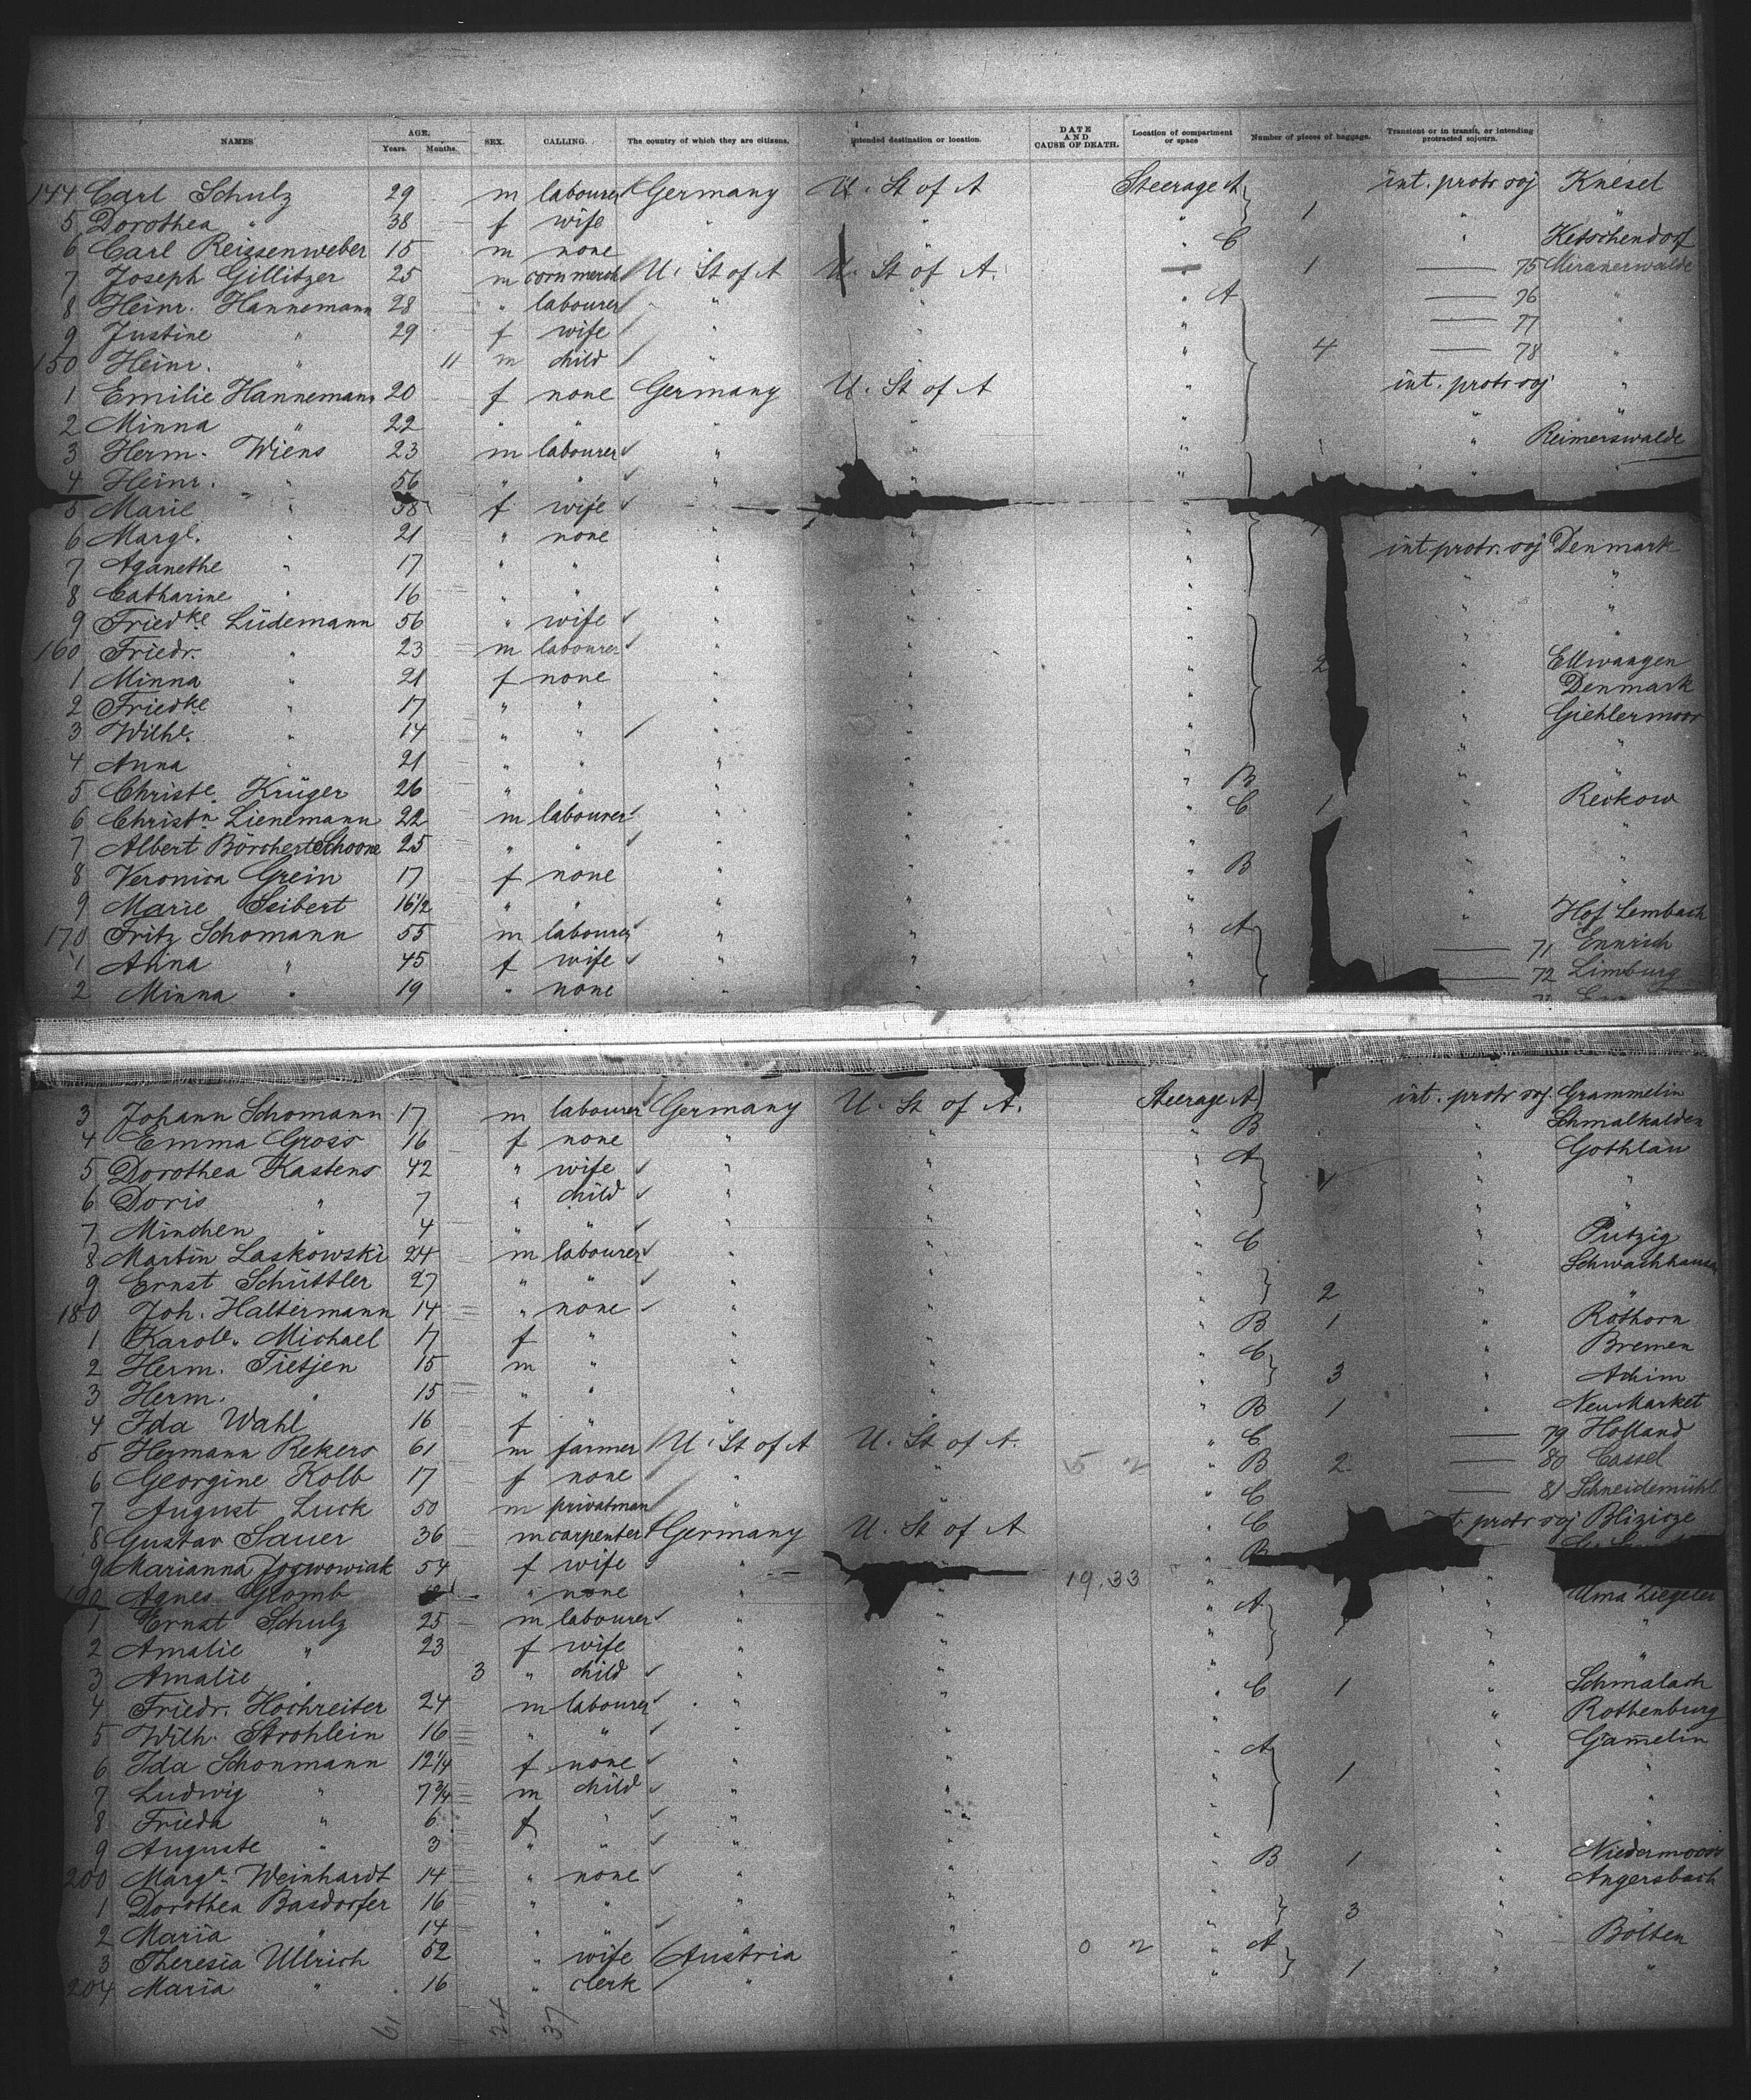 NAMES AGE. Years. Months. SEX. CALLING. The country of which they are citizens. Intended destination or location. DATE AND CAUSE OF DEATH. Location of compartment or space Number of pieces of baggage. Transient or in transit, or intending protracted sojourn.
144 Carl Schulz 29 m labourer Germany U. St of A Steerage A 1 int. protr soj Knesel
5 Dorothea " 38 f wife " " " " "
6 Carl Reissenweber 15 m none " " " C " Ketschendorf
7 Joseph Gillitzer 25 m corn merch U. St of A U. St of A. 1 — 75
8 Heinr. Hannemann 28 " labourer " " " A — 76 "
9 Justine " 29 f wife " " " — 77
150 Heinr. " 11 m child " " " 4 — 78 "
1 Emilie Hannemann 20 f none Germany U. St of A " int. protr soj "
2 Minna " 22 " " " " " " "
3 Herm. Wiens 23 m labourer " " " " Reimerswalde
4 Heinr. " 56 " " " " " " "
5 Marie " 58 f wife " " "
6 Margl. " 21 " none " " " int. protr. soj Denmark
7 Aganethe " 17 " " " " " " "
8 Catharine " 16 " " " " " " "
9 Friedke Lüdemann 56 " wife " " " "
160 Friedr. " 23 m labourer " " " 2 " Ellwangen
1 Minna " 21 f none " " " " Denmark
2 Friedke " 17 " " " " " " Giehlermoor
3 Wilhe. " 14 " " " " " " "
4 Anna " 21 " " " " " B " "
5 Christe. Krüger 26 " " " " " C 1 " Reckow
6 Christn Lienemann 22 m labourer " " " "
7 Albert Börchert 25 " " " " " B " "
8 Veronica Grein 17 f none " " "
9 Marie Seibert 16 1/2 " " " " " " Hof Lembach
170 Fritz Schomann 55 m labourer " " " A — 71
1 Anna " 45 f wife " " " — 72 Limburg
2 Minna " 19 " none " " "
3 Johann Schomann 17 m labourer Germany U. St of A. Steerage A int. protr soj. Grammelin
4 Emma Gross 16 f none " " " B " Schmalkalden
5 Dorothea Kastens 42 " wife " " " A " Gothlän
6 Doris " 7 " child " " " " "
7 Minchen " 4 " " " " " " "
8 Martin Laskowski 24 m labourer " " " C " Putzig
9 Ernst Schüttler 27 " " " " " "
180 Joh. Haltermann 14 " none " " " 2 " "
1 Karole. Michael 17 f " " " " B 1 " Rothorn
2 Herm. Tietjen 15 m " " " " C " Bremen
3 Herm. " 15 " " " " " 3 " Achim
4 Ida Wahl 16 f " " " " B 1 " Neu Market
5 Hermann Rekers 61 m farmer U. St of A U. St of A. " C — 79 Holland
6 Georgine Kolb 17 f none " " 5 2 " B 2 — 80 Cassel
7 August Luck 50 m privatman " " " C — 81 Schneidemühl
8 Gustav Sauer 36 m carpenter Germany U. St of A " C protr soj
9 Marianna 54 f wife " B
190 Agnes Glomb " none " " 19.33 " "
1 Ernst Schulz 25 m labourer " " " A "
2 Amalie " 23 f wife " " " 1 " "
3 Amalie " 3 " child " " " " "
4 Friedr. Hochreiter 24 m labourer " " " C 1 " Schmalach
5 Wilh. Strohlein 16 " " " " " " Rothenburg
6 Ida Schonmann 12 1/4 f none " " " A " Gamelin
7 Ludwig " 7 3/4 m child " " " 1 " "
8 Frieda " 6 f " " " " " "
9 Auguste " 3 " " " " " " "
200 Marga. Weinhardt 14 " none " " " B 1 " Niedermoos
1 Dorothea Basdorfer 16 " " " " " " Angersbach
2 Maria " 14 " " " " " 3 "
3 Theresia Ullrich 52 " wife Austria " 0 2 " A " Bölten
204 Maria " 16 " clerk " " " 1 " "
61 24 37